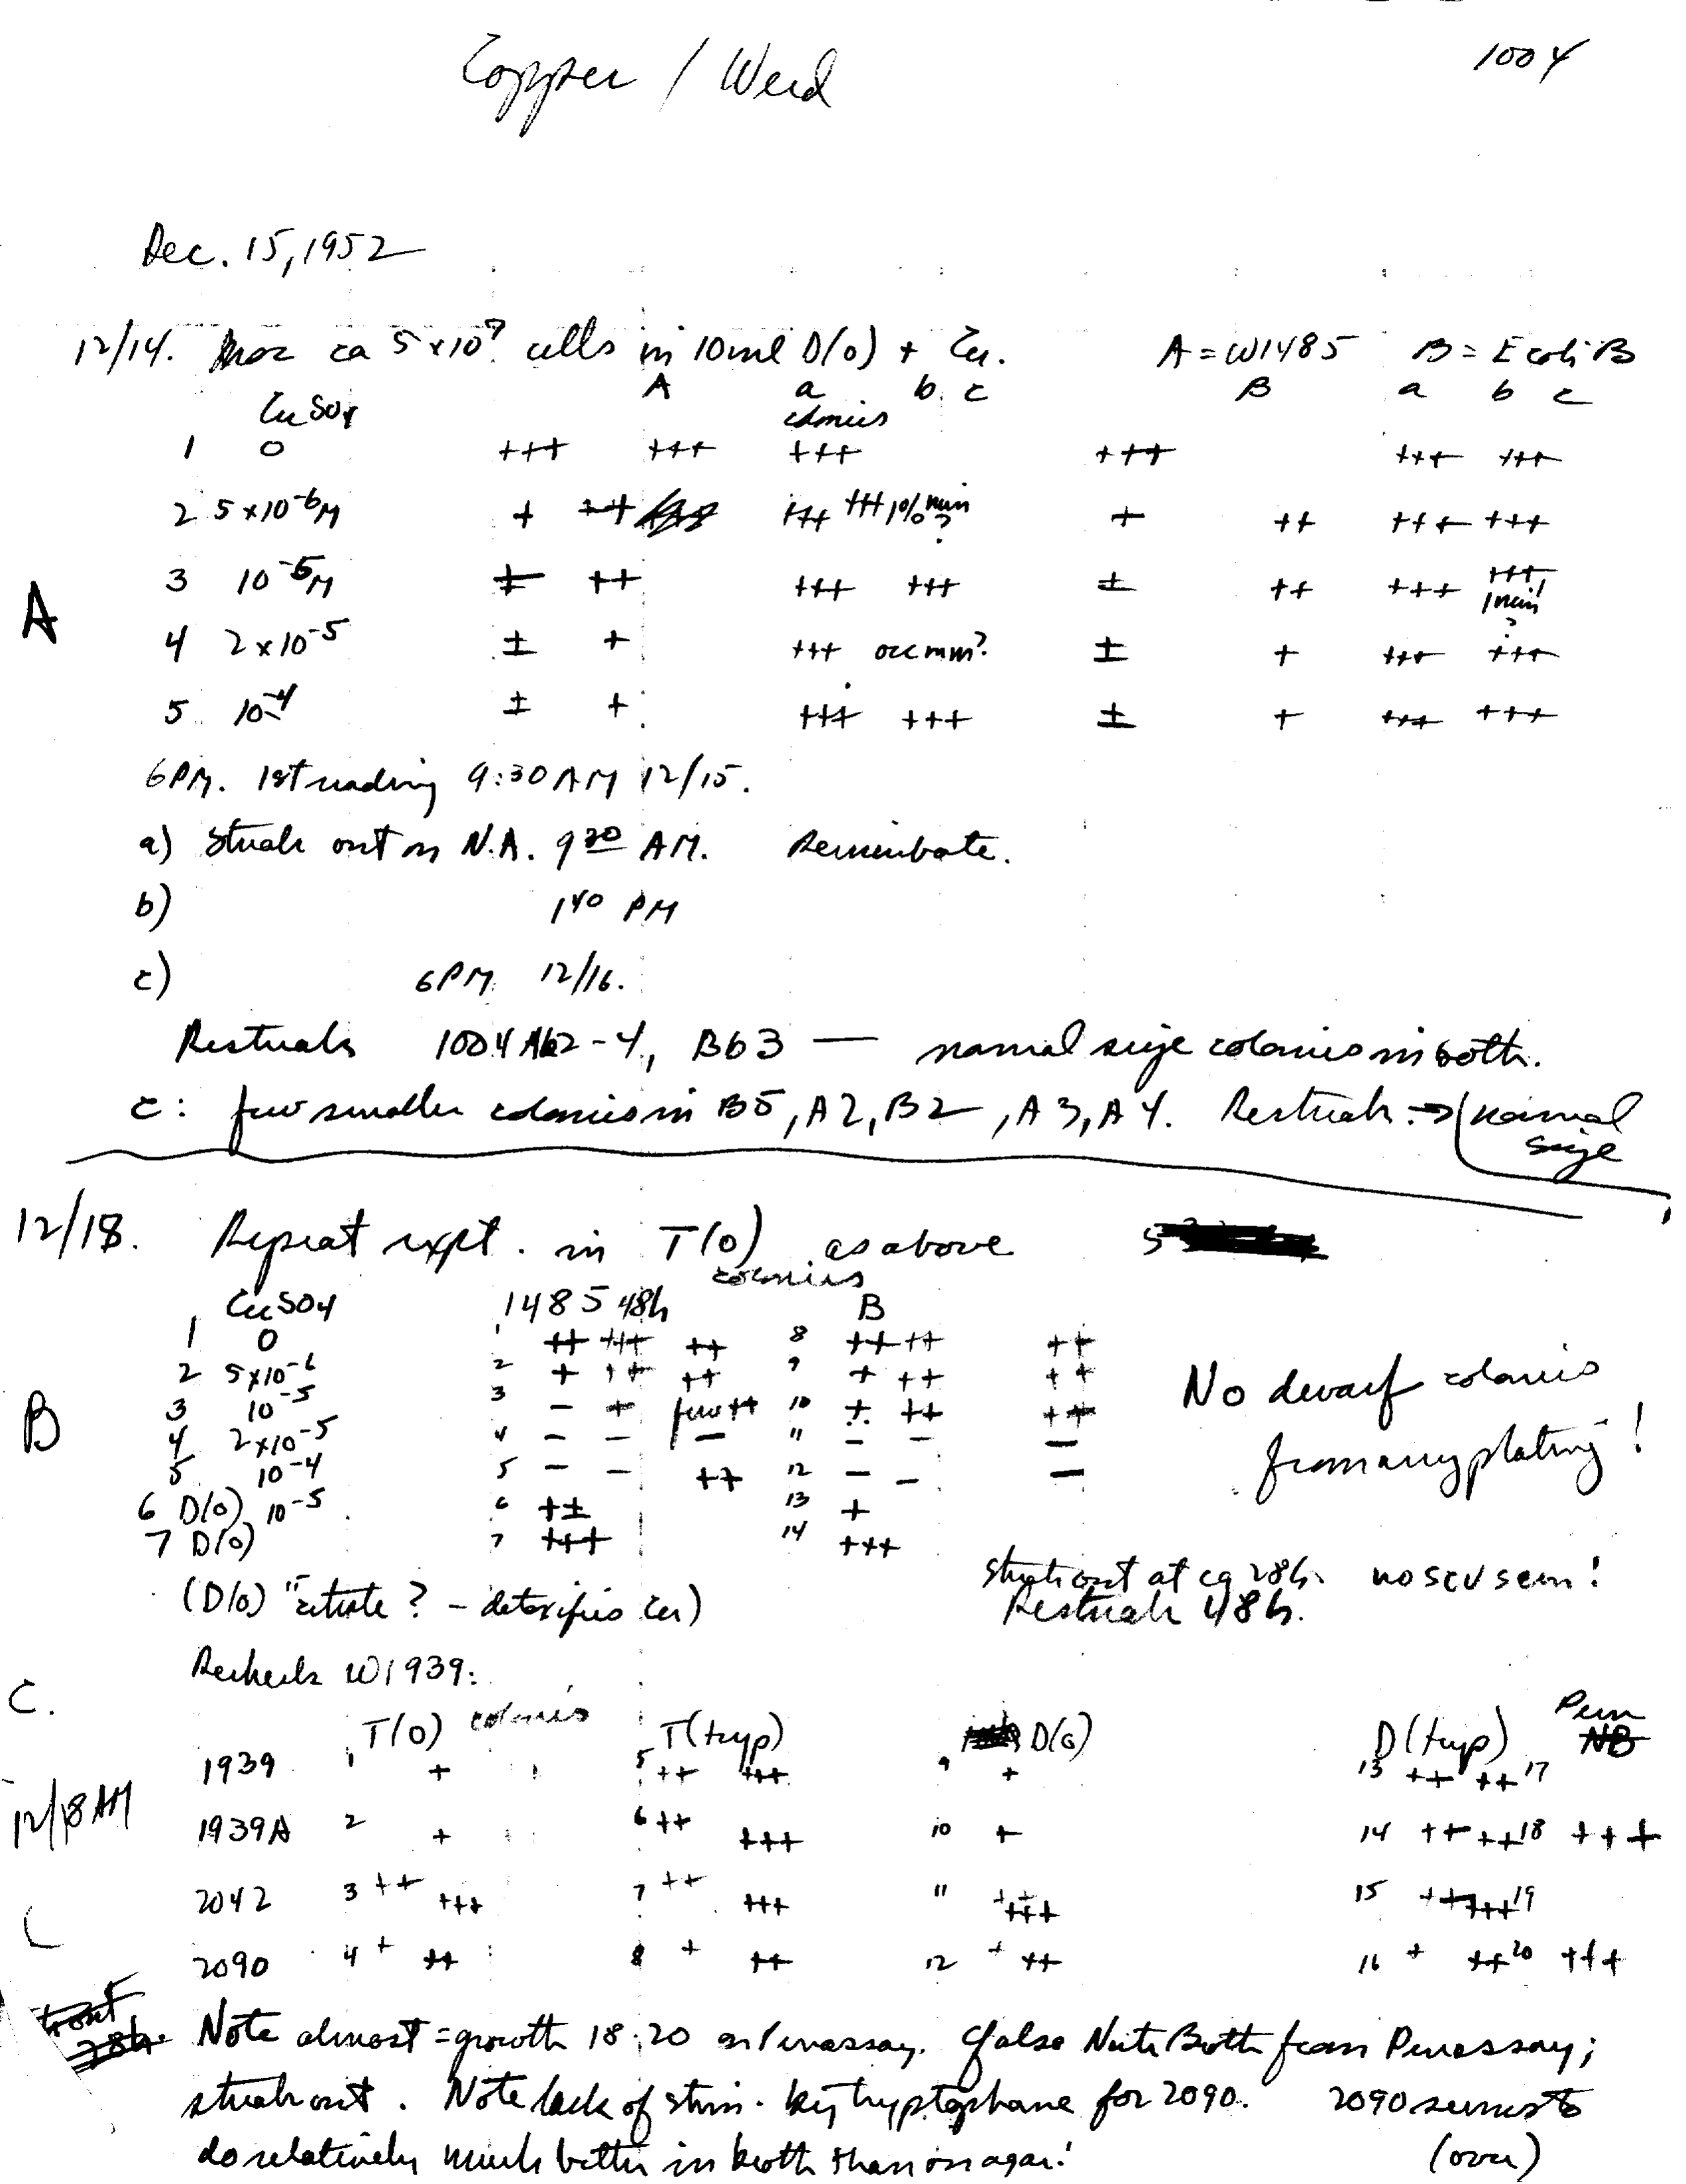 Copper / Weed
1004
Dec. 15, 1952
12/14. ca 5 x 10⁹ cells in 10 ml D(o) + Cu. A = W1485 B = E coli B
A a b c B a b c
CuSO4 colonies
1 0 +++ +++ +++ +++ +++ +++
2 5 x 10⁻⁶M + ++ +++ +++ + ++ +++ +++
3 10⁻⁵M ± ++ +++ +++ ± ++ +++ +++
4 2 x 10⁻⁵ ± + +++ occ mm? ± + +++ +++
5 10⁻⁴ ± + +++ +++ ± + +++ +++
A
6PM. 1st reading 9:30 AM 12/15.
a) Streak out on N.A. 9³⁰ AM. Reincubate.
b) 1⁴⁰ PM
c) 6PM 12/16.
Restreaks 1004 Ab2-4, Bb3 — normal size colonies in both.
c: few smaller colonies in B5, A2, B2, A3, A4. Restreak → normal size
12/18. Repeat expt. in T(o) as above
colonies
CuSO4 1485 48h B
1 0 1 ++ +++ ++ 8 ++ ++ ++
2 5x10⁻⁶ 2 + ++ ++ 9 + ++ ++
3 10⁻⁵ 3 – + few ++ 10 ± ++ ++
4 2x10⁻⁵ 4 – – – 11 – – –
5 10⁻⁴ 5 – – ++ 12 – – –
6 D(o) 10⁻⁵ 6 ++± 13 +
7 D(o) 7 +++ 14 +++
B
No dwarf colonies
from any plating!
(D(o) "citrate? – detoxifies Cu)
Streak out at ca 28h. no scv seen!
Restreak 48h.
C.
Recheck W1939:
T(o) colonies T(tryp) D(o) D(tryp) Penn NB
1939 1 + 5 ++ +++ 9 + 13 ++ ++ 17
12/18 AM
1939A 2 + 6 ++ +++ 10 + 14 ++ ++ 18 +++
2042 3 ++ +++ 7 ++ +++ 11 ++ +++ 15 ++ +++ 19
2090 4 + ++ 8 + ++ 12 + ++ 16 + ++ 20 +++
28h.
Note almost = growth 18, 20 on Penassay. Also Note Both from Penassay;
streak out. Note lack of stim. by tryptophane for 2090. 2090 seems to
do relatively much better in broth than on agar!
(over)